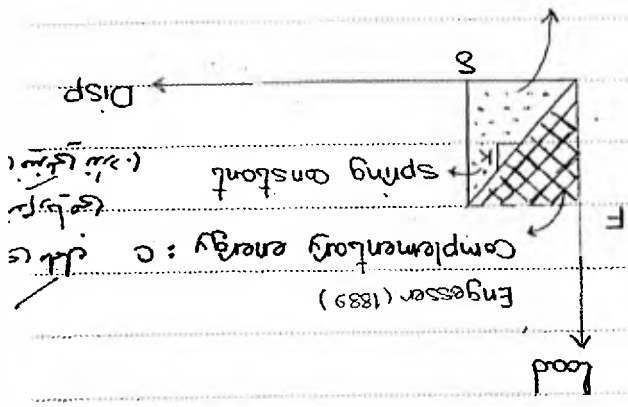 Load
Engesser (1889)
Complementary energy : C
F
spring constant
K
Disp
δ